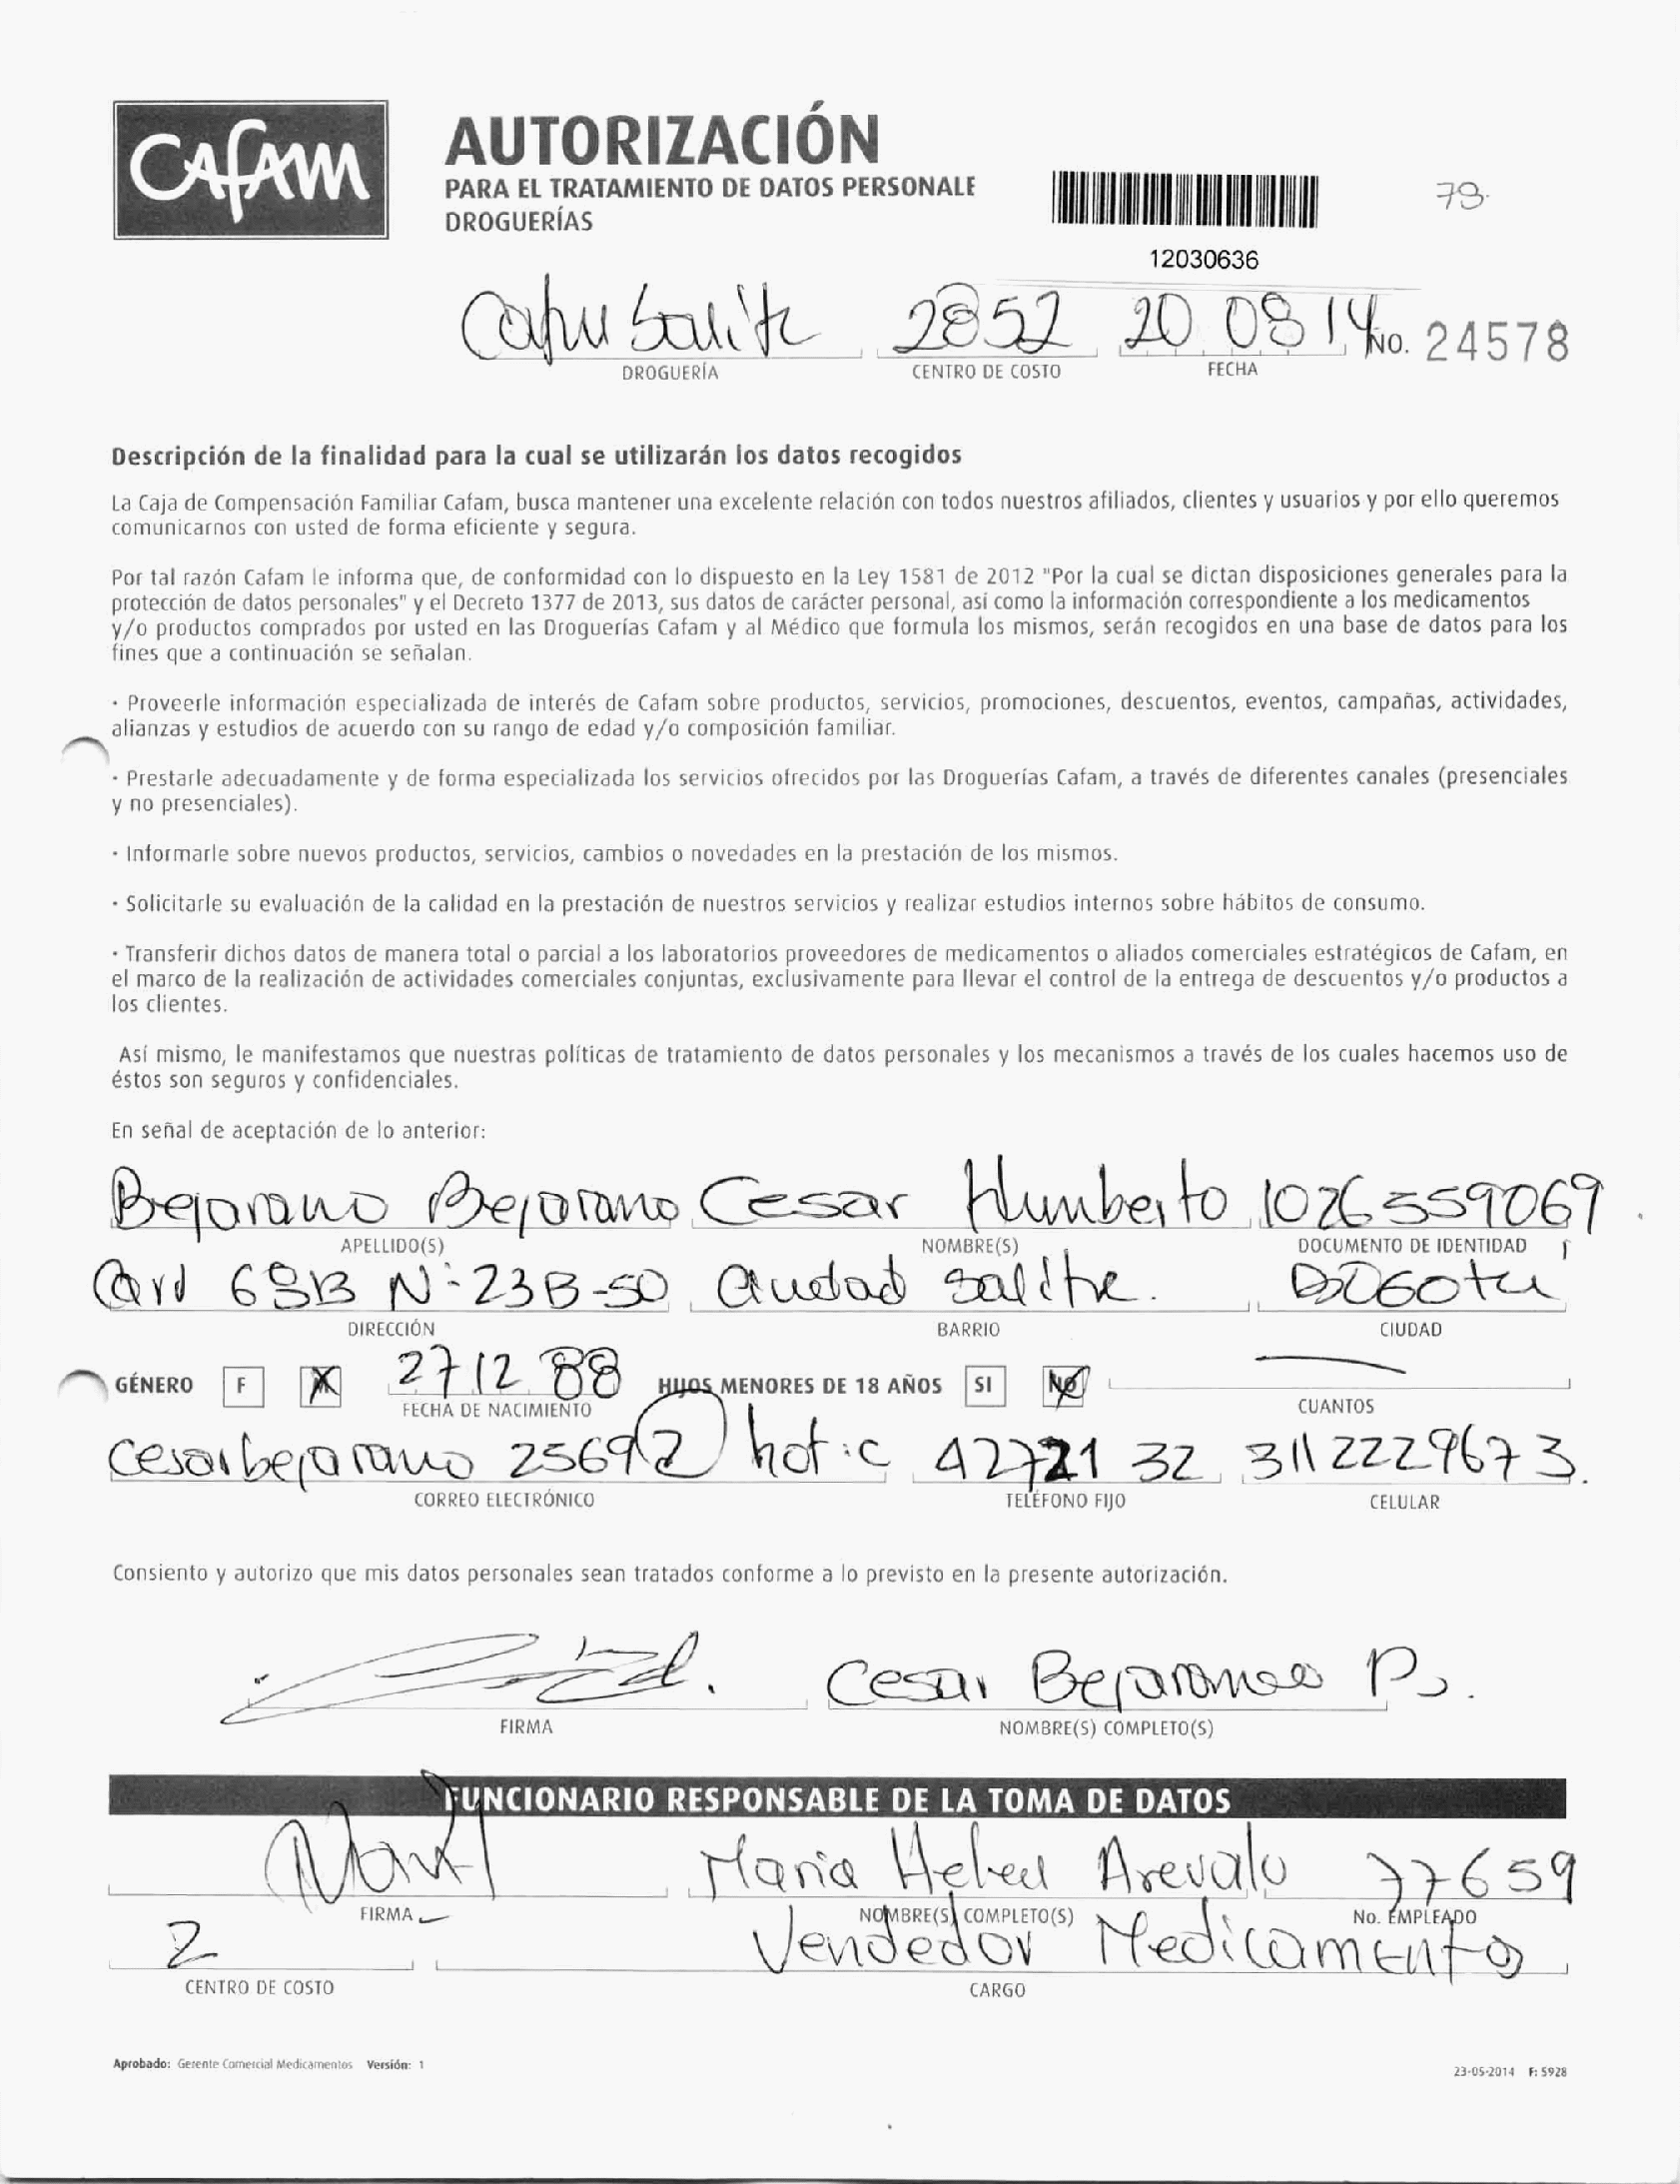 CAFAM
AUTORIZACIÓN
PARA EL TRATAMIENTO DE DATOS PERSONALE
DROGUERÍAS
12030636
79.
2852 20 08 14 No. 24578
DROGUERÍA CENTRO DE COSTO FECHA
Descripción de la finalidad para la cual se utilizarán los datos recogidos
La Caja de Compensación Familiar Cafam, busca mantener una excelente relación con todos nuestros afiliados, clientes y usuarios y por ello queremos
comunicarnos con usted de forma eficiente y segura.
Por tal razón Cafam le informa que, de conformidad con lo dispuesto en la Ley 1581 de 2012 "Por la cual se dictan disposiciones generales para la
protección de datos personales" y el Decreto 1377 de 2013, sus datos de carácter personal, así como la información correspondiente a los medicamentos
y/o productos comprados por usted en las Droguerías Cafam y al Médico que formula los mismos, serán recogidos en una base de datos para los
fines que a continuación se señalan.
· Proveerle información especializada de interés de Cafam sobre productos, servicios, promociones, descuentos, eventos, campañas, actividades,
alianzas y estudios de acuerdo con su rango de edad y/o composición familiar.
· Prestarle adecuadamente y de forma especializada los servicios ofrecidos por las Droguerías Cafam, a través de diferentes canales (presenciales
y no presenciales).
· Informarle sobre nuevos productos, servicios, cambios o novedades en la prestación de los mismos.
· Solicitarle su evaluación de la calidad en la prestación de nuestros servicios y realizar estudios internos sobre hábitos de consumo.
· Transferir dichos datos de manera total o parcial a los laboratorios proveedores de medicamentos o aliados comerciales estratégicos de Cafam, en
el marco de la realización de actividades comerciales conjuntas, exclusivamente para llevar el control de la entrega de descuentos y/o productos a
los clientes.
Así mismo, le manifestamos que nuestras políticas de tratamiento de datos personales y los mecanismos a través de los cuales hacemos uso de
éstos son seguros y confidenciales.
En señal de aceptación de lo anterior:
Bejarano Bejarano Cesar Humberto 1026559069
APELLIDO(S) NOMBRE(S) DOCUMENTO DE IDENTIDAD
68B N: 23B-50 Ciudad Salitre. Bogota
DIRECCIÓN BARRIO CIUDAD
GÉNERO F X 27 12 88 HIJOS MENORES DE 18 AÑOS SI NO
FECHA DE NACIMIENTO CUANTOS
cesarbejarano 2569@ hot.c 42721 32 311 2229673.
CORREO ELECTRÓNICO TELÉFONO FIJO CELULAR
Consiento y autorizo que mis datos personales sean tratados conforme a lo previsto en la presente autorización.
Cesar Bejarano
FIRMA NOMBRE(S) COMPLETO(S)
FUNCIONARIO RESPONSABLE DE LA TOMA DE DATOS
Maria Helen Arevalo 77659
FIRMA NOMBRE(S) COMPLETO(S) No. EMPLEADO
2 Vendedor Medicamentos
CENTRO DE COSTO CARGO
Aprobado: Gerente Comercial Medicamentos Versión: 1
23-05-2014 F: 5928